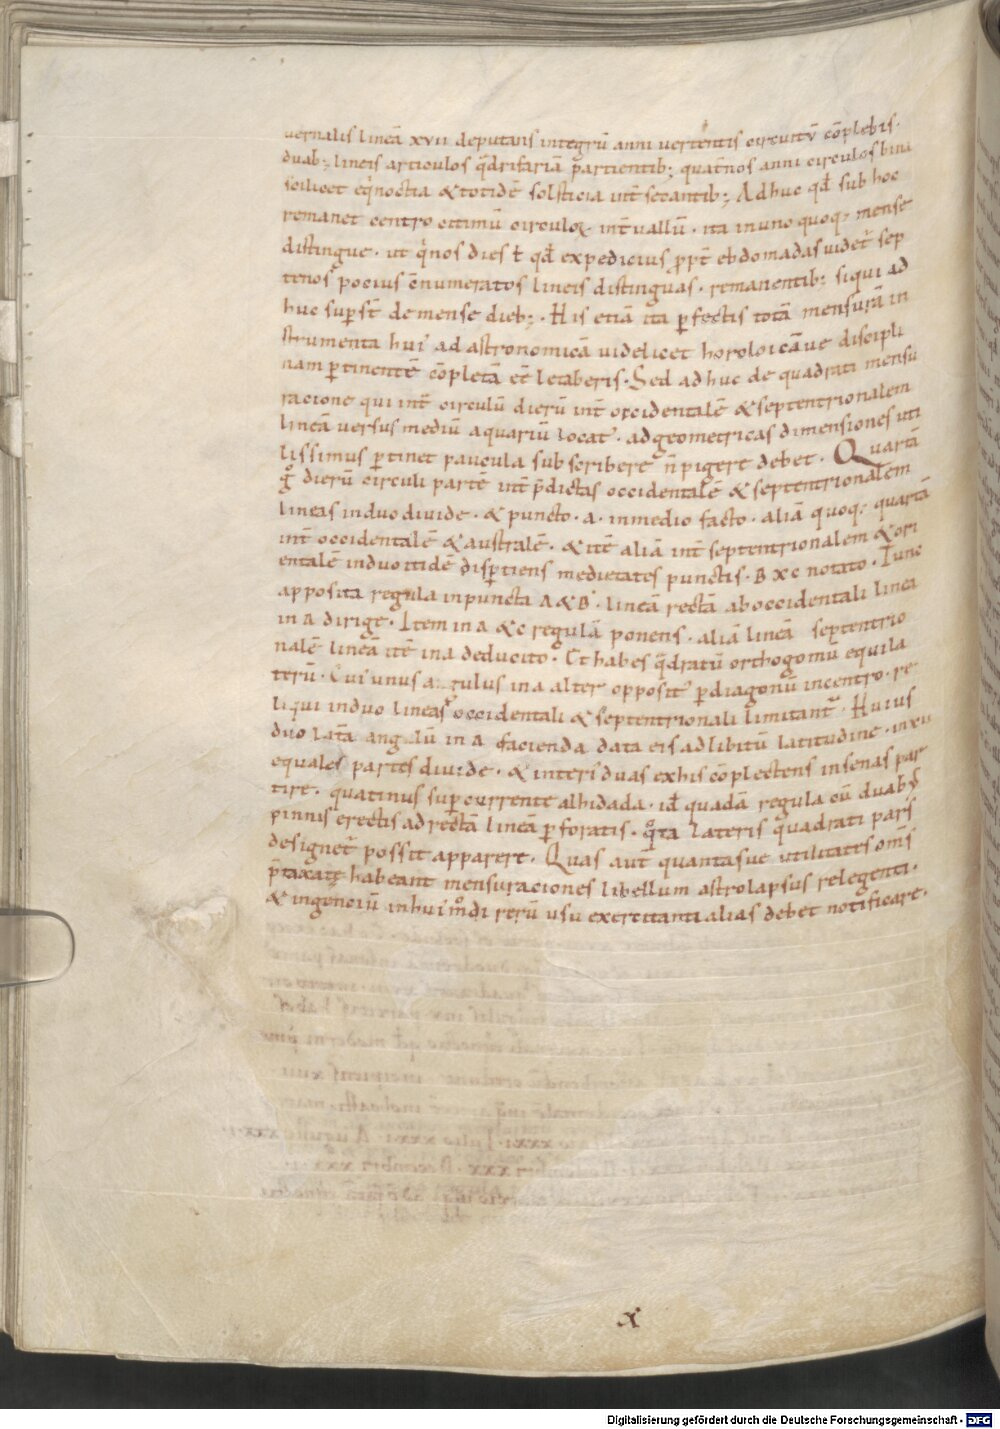 uernalis lineā xvii deputans integrū anni uertentis circuitū cōplebis.
duab; lineis articulos q̄drifariā p̄artientib; quat̄nos anni circulos bina
scilicet eq̇noctia & totidē solsticia int̄ secantib; Adhuc qđ sub hoc
remanet centro ottimū circuloꝝ int̄uallū · ita in uno quoq; mense
distingue · ut q̇nos dies ł qđ expedicius ꝓpt̄ ebdomadas uidet̄ sep
tenos pocius c̄numeratos lineis distinguas · remanentib; siqui ad
huc suꝑst̄ de mense dieb; · His etiā ita ꝑfectis totā mensurā in
strumenta hui' ad astronomicā uidelicet horoloicāue discipli
nam ꝑtinentē cōpletā ee̅ letaberis · Sed adhuc de quadrati mensu
racione qui int̄ circulū dierū int̄ occidentalē & septentrionalem
lineā uersus mediū aquariū locat' · ad geometricas dimensiones uti
lissimus ꝑtinet paucula subscribere n̄ pigere debet · Quartā
g̊ dierū circuli partē int̄ p̄dictas occidentalē & septentrionalem
lineas in duo diuide · & puncto · a · in medio facto · aliā quoq; quartā
int̄ occidentalē & australē · & itē aliā int̄ septentrionalem & ori
entalē in duo itidē disꝑtiens medietates punctis · B & c notato · Tunc
apposita regula in puncta A & B · lineā rectā ab occidentali linea
in A dirige · Item in A & c regulā ponens · aliā lineā septentrio
nalē lineā itē in a deducito · Et habes q̄dratū orthogomū equila
terū · Cui' unus a gulus in a alter opposit' ꝑ diagonū in centro · re
liqui in duo lineas occidentali & septentrionali limitant̄ · Huius
duo lat̄a angulū in A facienda data eis ad libitū latitudine · in xii
equales partes diuide · & interi' duas ex his cōplectens in senas par
tire · quatinus suꝑcurrente alhidada · id̄ quadā regula cū duab;
pinnis erectis ad rectā lineā ꝑforatis · q̊ta lateris quadrati pars
designet̄ possit apparere · Quas aut̄ quantasue utilitates om̄s
p̄taxatę habeant mensuraciones libellum astrolapsus relegenti ·
& ingeniū in hui' m̊di rerū usu exercitanti alias debet notificare ·
x
Digitalisierung gefördert durch die Deutsche Forschungsgemeinschaft - DFG